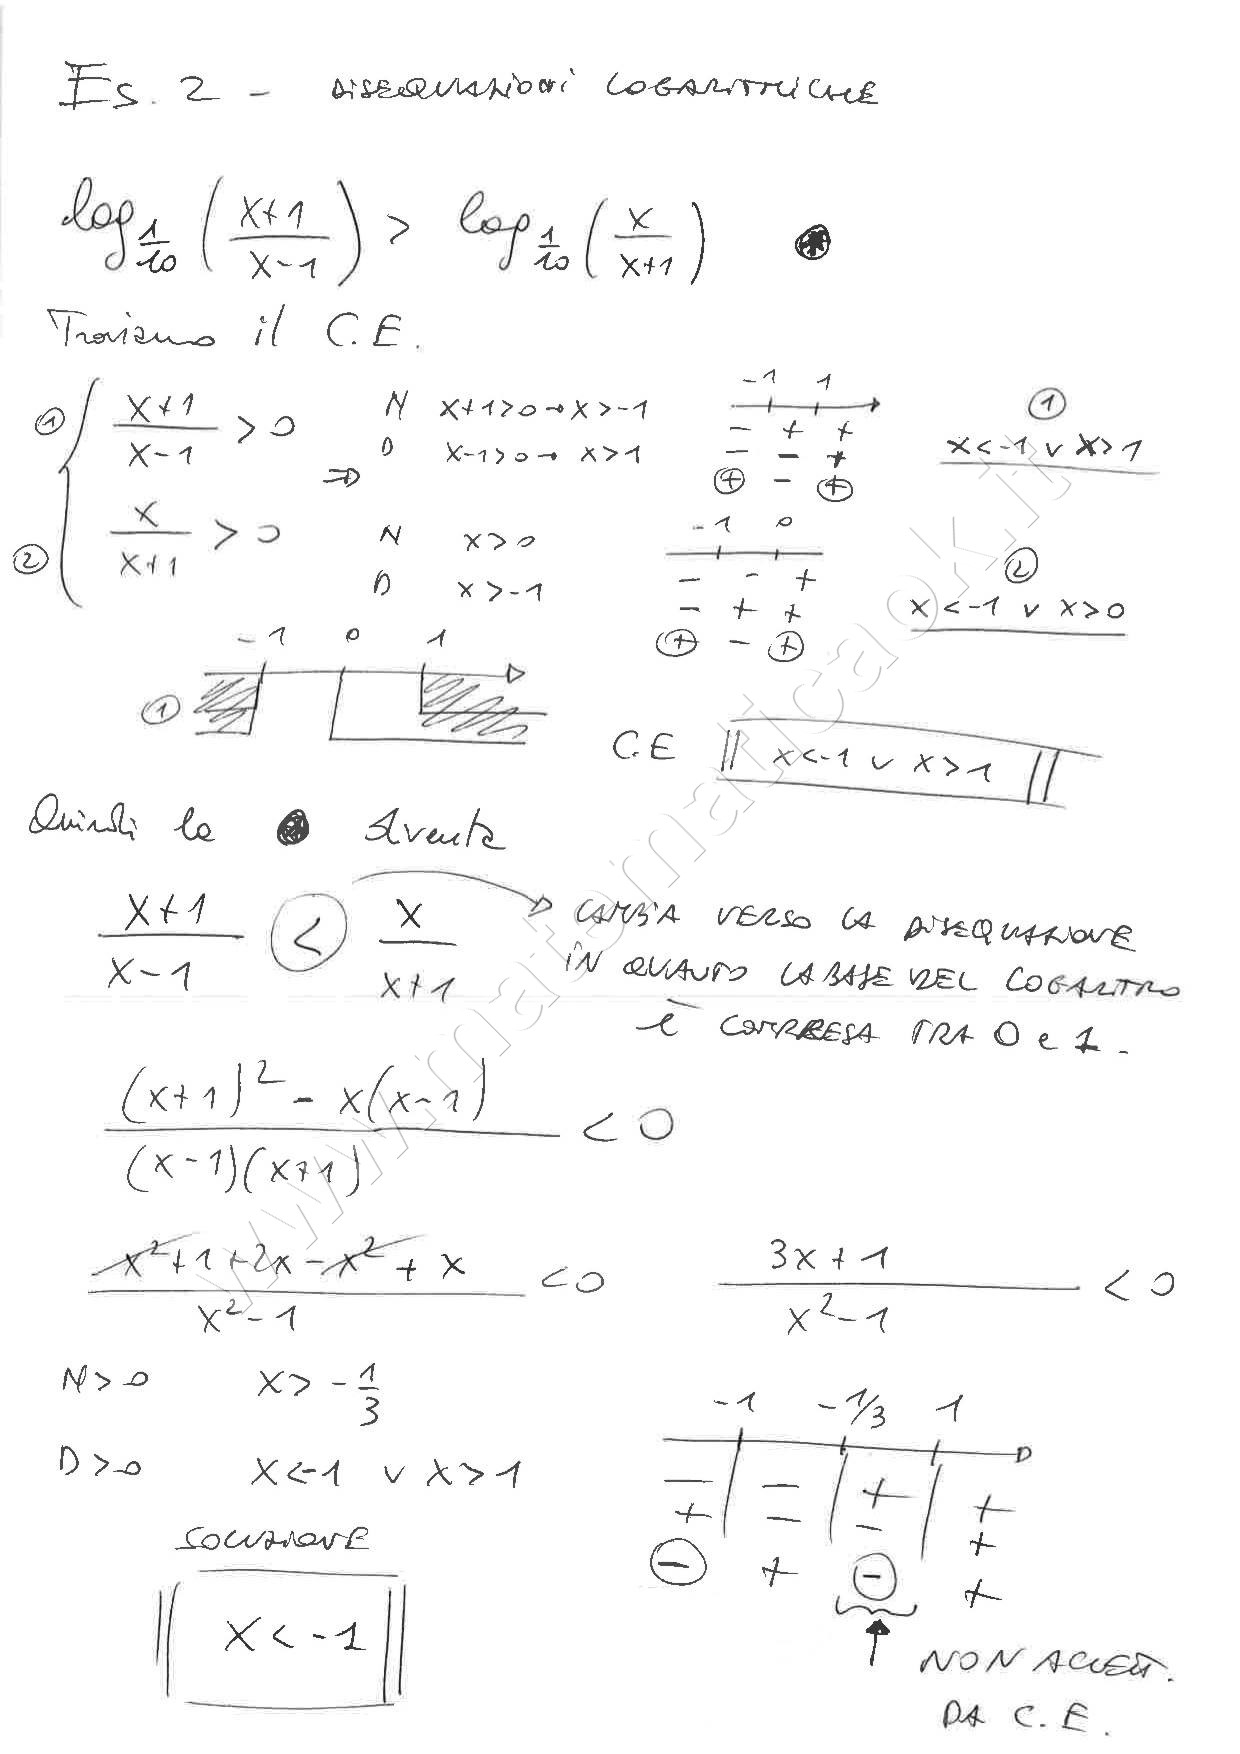 Es. 2 - DISEQUAZIONI LOGARITMICHE
log 1/10 ( x+1 / x-1 ) > log 1/10 ( x / x+1 )
Troviamo il C.E.
① x+1 / x-1 > 0 ⇒ N x+1>0 → x>-1
D x-1>0 → x>1
-1 1
- + +
- - +
⊕ - ⊕
①
x<-1 ∨ x>1
② x / x+1 > 0 N x>0
D x>-1
-1 0
- - +
- + +
⊕ - ⊕
②
x<-1 ∨ x>0
-1 0 1
①
C.E x<-1 ∨ x>1
Quindi la diventa
x+1 / x-1 < x / x+1
CAMBIA VERSO LA DISEQUAZIONE
IN QUANTO LA BASE DEL LOGARITMO
È COMPRESA TRA 0 e 1.
(x+1)² - x(x-1) / (x-1)(x+1) < 0
x²+1+2x-x²+x / x²-1 <0 3x+1 / x²-1 < 0
N>0 x > -1/3
D>0 x<-1 ∨ x>1
-1 -1/3 1
- - + +
+ - - +
⊖ + ⊖ +
SOLUZIONE
x < -1
NON ACCETT.
DA C.E.
www.matematicaok.it